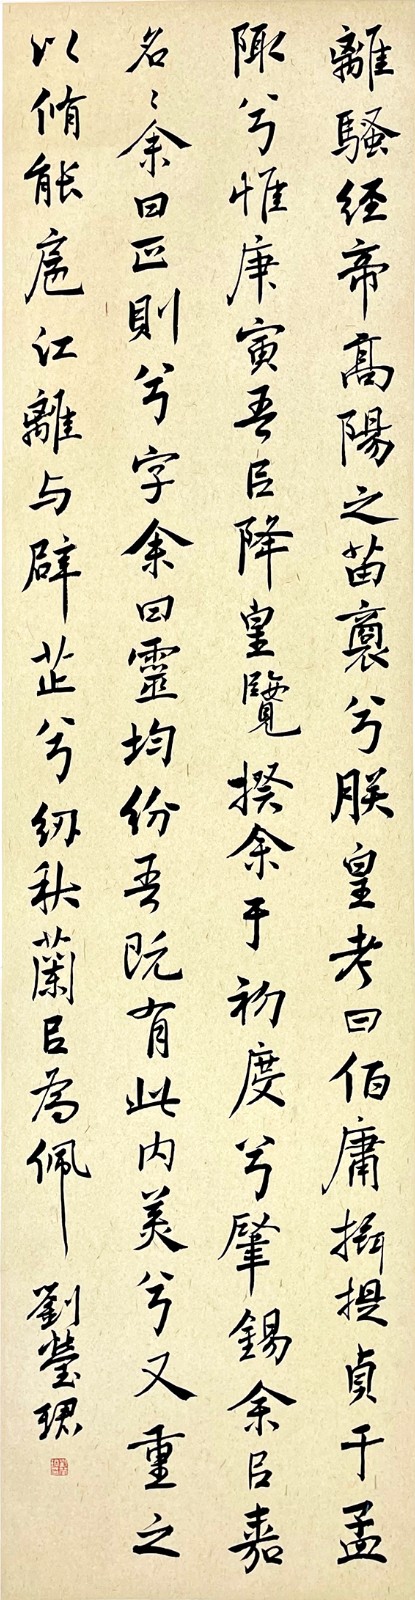 離騷経帝高陽之苗裔兮朕皇考曰伯庸攝提貞于孟
陬兮惟庚寅吾㠯降皇覽揆余于初度兮肇錫余㠯嘉
名〻余曰正則兮字余曰靈均紛吾既有此内美兮又重之
以脩能扈江離与辟芷兮紉秋蘭㠯為佩 劉瑩珺